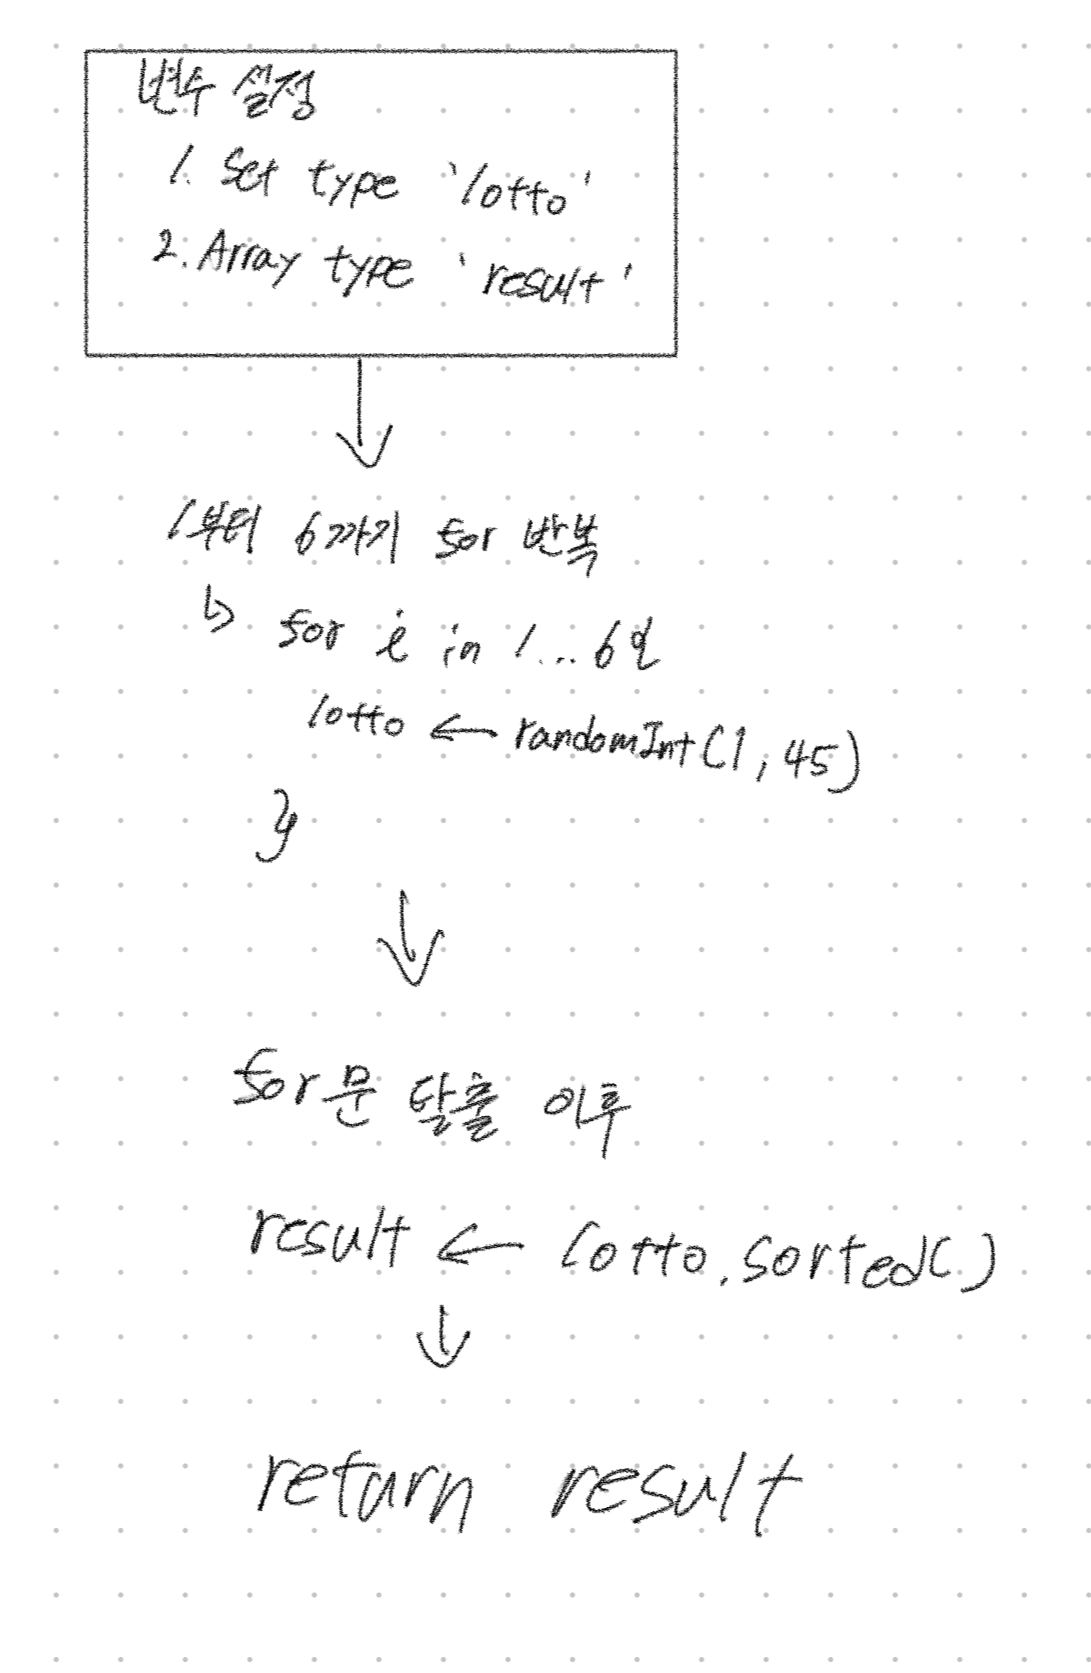 변수 설정
1. Set type 'lotto'
2. Array type 'result'
1부터 6까지 for 반복
↳ for i in 1...6 {
lotto ← randomInt(1, 45)
}
for문 탈출 이후
result ← lotto.sorted()
return result